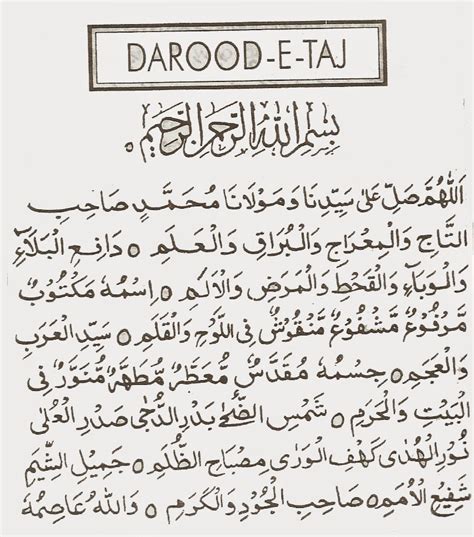 DAROOD-E-TAJ
بِسْمِ اللّٰهِ الرَّحْمٰنِ الرَّحِيْمِ ○
اَللّٰهُمَّ صَلِّ عَلٰى سَيِّدِنَا وَمَوْلَانَا مُحَمَّدٍ صَاحِبِ
التَّاجِ وَالْمِعْرَاجِ وَالْبُرَاقِ وَالْعَلَمِ ○ دَافِعِ الْبَلَآءِ
وَالْوَبَآءِ وَالْقَحْطِ وَالْمَرَضِ وَالْاَلَمِ ○ اِسْمُهٗ مَكْتُوْبٌ
مَّرْفُوْعٌ مَّشْفُوْعٌ مَّنْقُوْشٌ فِى اللَّوْحِ وَالْقَلَمِ ○ سَيِّدِ الْعَرَبِ
وَالْعَجَمِ ○ جِسْمُهٗ مُقَدَّسٌ مُّعَطَّرٌ مُّطَهَّرٌ مُّنَوَّرٌ فِى
الْبَيْتِ وَالْحَرَمِ ○ شَمْسِ الضُّحٰى بَدْرِ الدُّجٰى صَدْرِ الْعُلٰى
نُوْرِ الْهُدٰى كَهْفِ الْوَرٰى مِصْبَاحِ الظُّلَمِ ○ جَمِيْلِ الشِّيَمِ
شَفِيْعِ الْاُمَمِ ○ صَاحِبِ الْجُوْدِ وَالْكَرَمِ ○ وَاللّٰهُ عَاصِمُهٗ